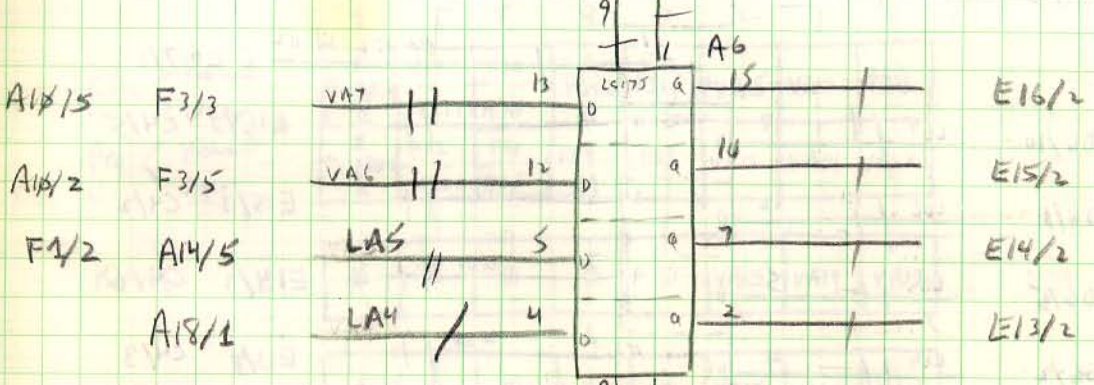 9 1 A6
LS175
A10/5 F3/3 VA7 13 D Q 15 E16/2
A10/2 F3/5 VA6 12 D Q 14 E15/2
F1/2 A14/5 LA5 5 D Q 7 E14/2
A18/1 LA4 4 D Q 2 E13/2